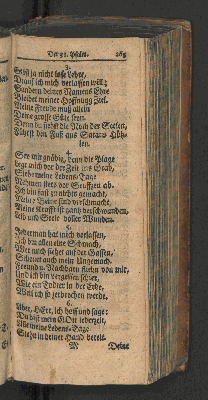 Der 31. Psalm. 269
3.
Es ist ja nicht lose Lehre,
Drauf ich mich verlassen will;
Sondern deines Namens Ehre
Bleibet meiner Hoffnung Ziel.
Meine Freude muß allein
Deine grosse Güte seyn.
Denn du siehst die Noth der Seelen,
den Fuß aus Satans Höh-
len.
4.
Sey mir gnädig, denn die Plage
legt mich vor der Zeit ins Grab,
Meine Lebens-Tage
Nehmen stets vor Seufzen ab.
Ich bin fast zu nichts gemacht,
Meine Beine sind verschmacht,
Meine Krafft ist gantz verschwunden,
Leib und Seele voller Wunden.
5.
Jederman hat mich verlassen,
Ich bin allen eine Schmach,
Wer mich siehet auf der Gassen,
Schreyt auch mein Ungemach.
Freund und Nachbarn fliehn von mir,
und ich bin vergessen schier,
Wie ein Todter in der Erde,
Weil ich so zerbrochen werde.
6.
Aber, HErr, ich hoff und sage:
Du bist mein GOtt jederzeit,
Alle meine Lebens-Tage
Stehn in deiner Hand bereit.
M Deine